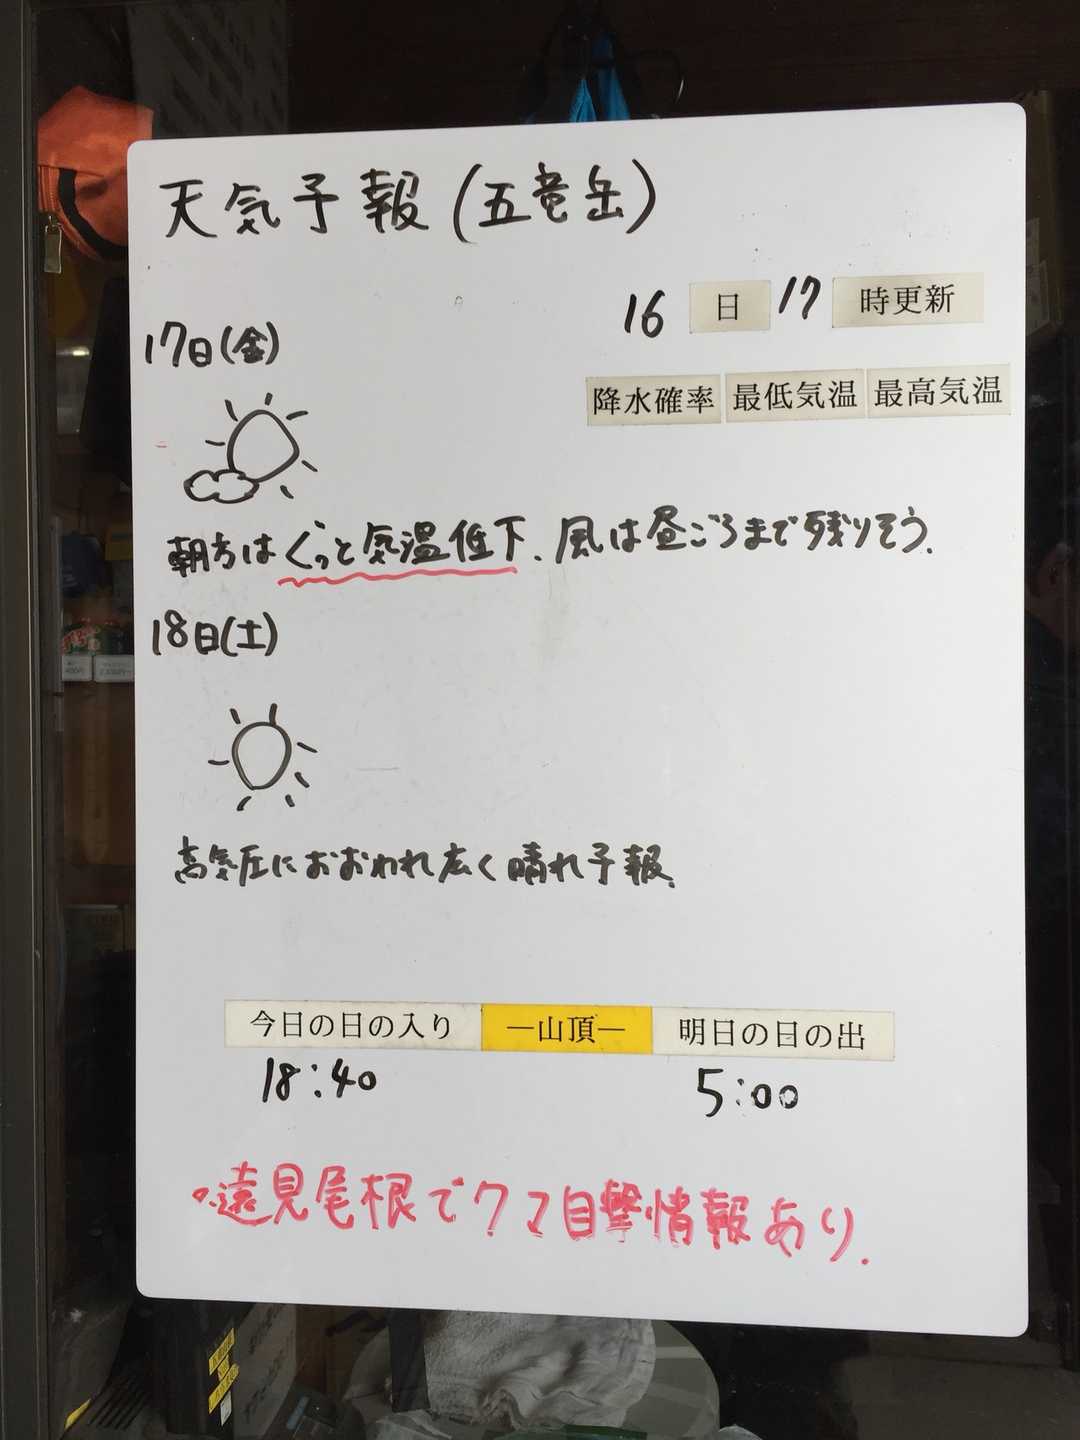 天気予報(五竜岳)
16日17時更新
17日(金)
降水確率 最低気温 最高気温
朝方はぐっと気温低下、風は昼ごろまで残りそう.
18日(土)
高気圧におおわれ広く晴れ予報.
今日の日の入り ―山頂― 明日の日の出
18:40 5:00
遠見尾根でクマ目撃情報あり.